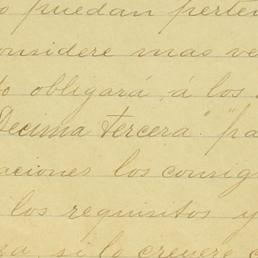 o puedan perten
onsidere mas ve
o obligará á los
Decima tercera." "pa
aciones los consig
los requisitos y
ra, si lo creyere c